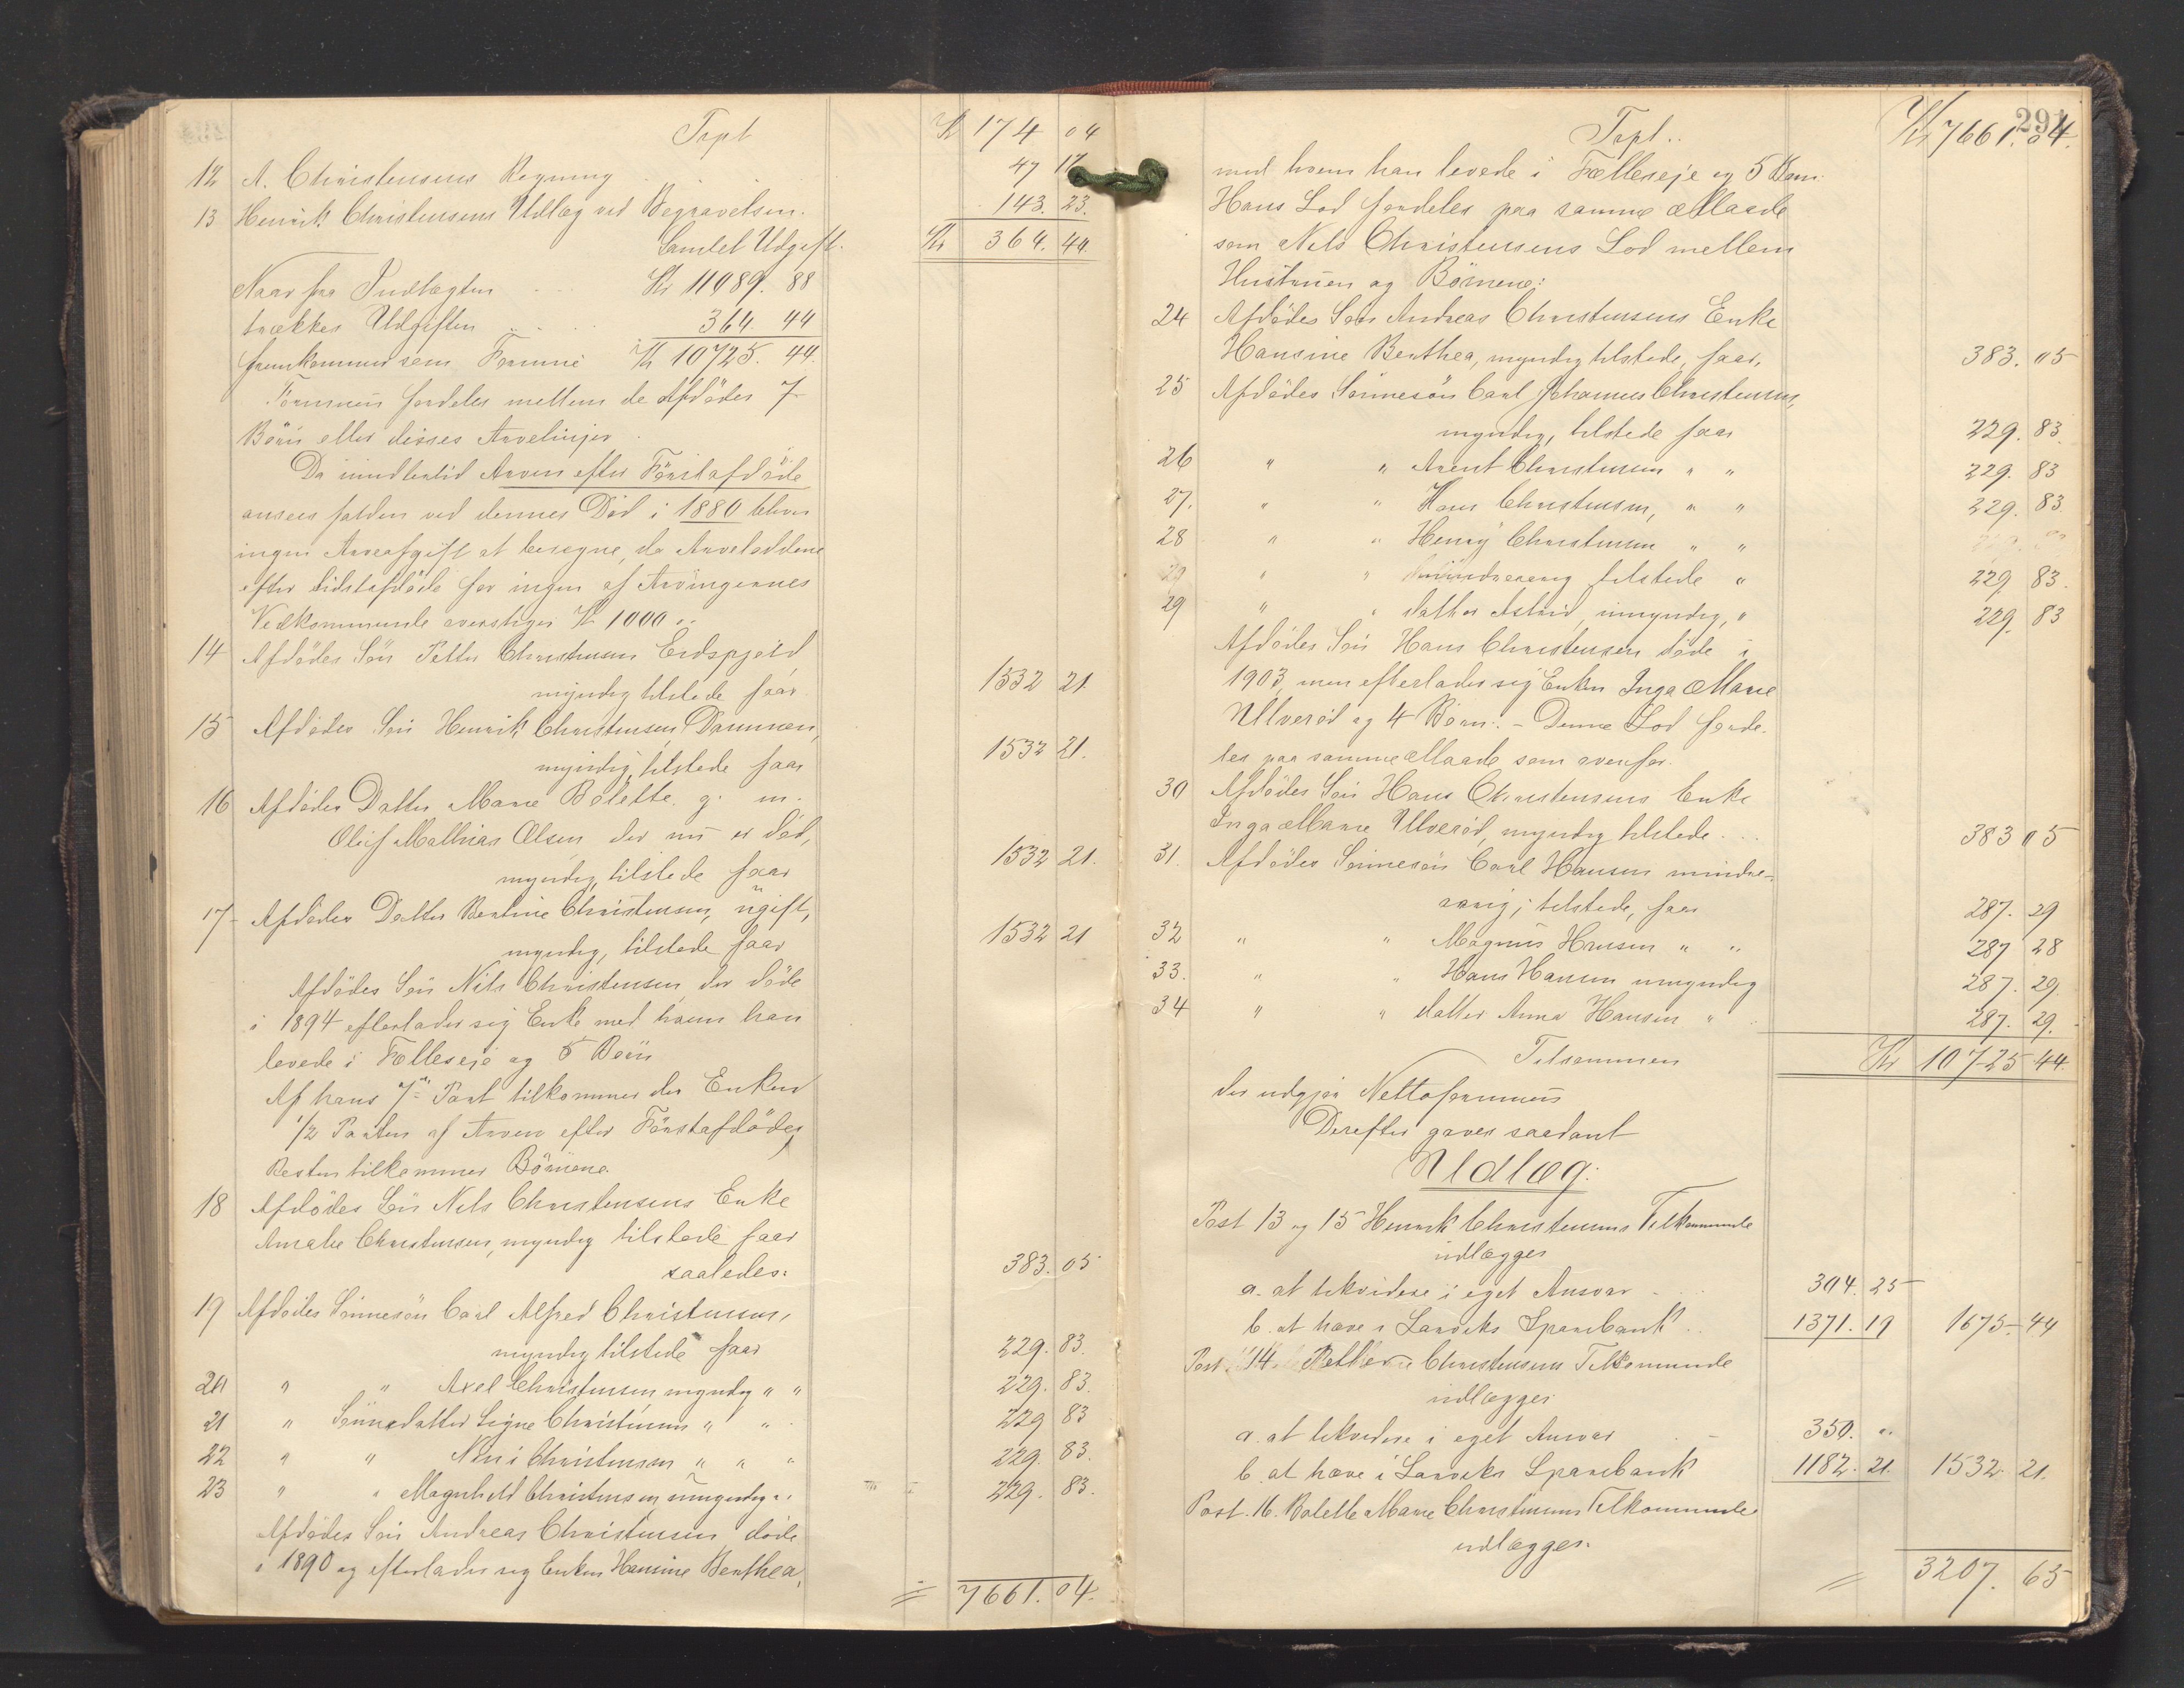 Trpt Kr 174 04
12 A. Christensens Regning 47 17
13 Henrik Christensens Udlæg ved Begravelsen. 143. 23.
Samlet Udgift. Kr 364. 44
Naar fra Indtægten Kr 11089. 88
trækkes Udgiften 364 44
fremkommer som Formue Kr 10725. 44.
Formuen fordeles mellem de Afdødes 7
Børn eller disses Arvelinjer.
Da imidlertid Arven efter Førstafdøde
ansees falden ved dennes Død i 1880 bliver
ingen Arveafgift at beregne, da Arveloddene
efter sidstafdøde for ingen af Arvingernes
Vedkommende overstiger Kr 1000 "
14 Afdødes Søn Petter Christensen Eidspjeld,
myndig tilstede faar 1532 21
15 Afdødes Søn Henrik Christensen, Drammen,
myndig, tilstede faar 1532 21.
16 Afdødes Datter Marie Bolette g. m.
Oluf Mathias Olsen der nu er død,
myndig, tilstede faar 1532 21.
17 Afdødes Datter Bentine Christensen, ugift,
myndig, tilstede faar 1532 21
Afdødes Søn Nils Christensen der døde
i 1894 efterlader sig Enke med hvem han
levede i Fælleseje og 5 Børn
Af hans 7de Part tilkommer der Enken
1/2 Parten af Arven efter Førstafdøde,
Resten tilkommer Børnene.
18 Afdødes Søn Nils Christensens Enke
Amalie Christensen, myndig tilstede faar
saaledes: 383. 05
19 Afdødes Sønnesøn Carl Alfred Christensen,
myndig tilstede faar 229. 83.
20 " " Axel Christensen myndig " " 229. 83.
21 " Sønnedatter Signe Christensen " " 229 83
22 " " Christensen " " " 229. 83.
23 " " Magnhild Christensen umyndig " 229. 83.
Afdødes Søn Andreas Christensen døde
i 1890 og efterlader sig Enken Hansine Benthea,
= 7661. 04.
291
Trpt.. Kr 7661. 04.
med hvem han levede i Fælleseje og 5 Børn.
Hans Lod fordeles paa samme Maade
som Nils Christensens Lod mellem
Hustruen og Børnene:
24 Afdødes Søn Andreas Christensens Enke
Hansine Benthea, myndig tilstede, faar, 383. 05
25 Afdødes Sønnesøn Carl Johannes Christensen,
myndig, tilstede faar 229. 83.
26 " " Arent Christensen " " 229. 83
27. " " Hans Christensen, " " 229. 83.
28 " " Henry Christensen " "
" " mindreaarig tilstede " 229 83.
29 " " datter Astrid, umyndig, " 229. 83
Afdødes Søn Hans Christensen døde i
1903, men efterlader sig Enken Inga Marie
Ulverød og 4 Børn. - Denne Lod forde-
les paa samme Maade som ovenfor.
30 Afdødes Søn Hans Christensens Enke
Inga Marie Ulverød, myndig tilstede 383 05
31. Afdødes Sønnesøn Carl Hansen mindre-
aarig, tilstede, faar 287. 29
32 " " Magnus Hansen " " 287 28
33. " " Hans Hansen umyndig 287. 29.
34 " " datter Anna Hansen " 287. 29.
Tilsammen Kr 10725 44.
der udgjør Nettoformuen
Derefter gaves saadant
Udlæg:
Post 13 og 15 Henrik Christensens Tilkommende
udlægges
a. at likvidere i eget Ansvar 304. 25
b. at hæve i Larviks Sparebank 1371. 19 1675. 44
Post 14 Petter Christensens Tilkommende
udlægges
a. at likvidere i eget Ansvar 350. "
b. at hæve i Larviks Sparebank 1182. 21. 1532. 21.
Post. 16. Bolette Marie Christensens Tilkommende
udlægges.
= 3207. 65